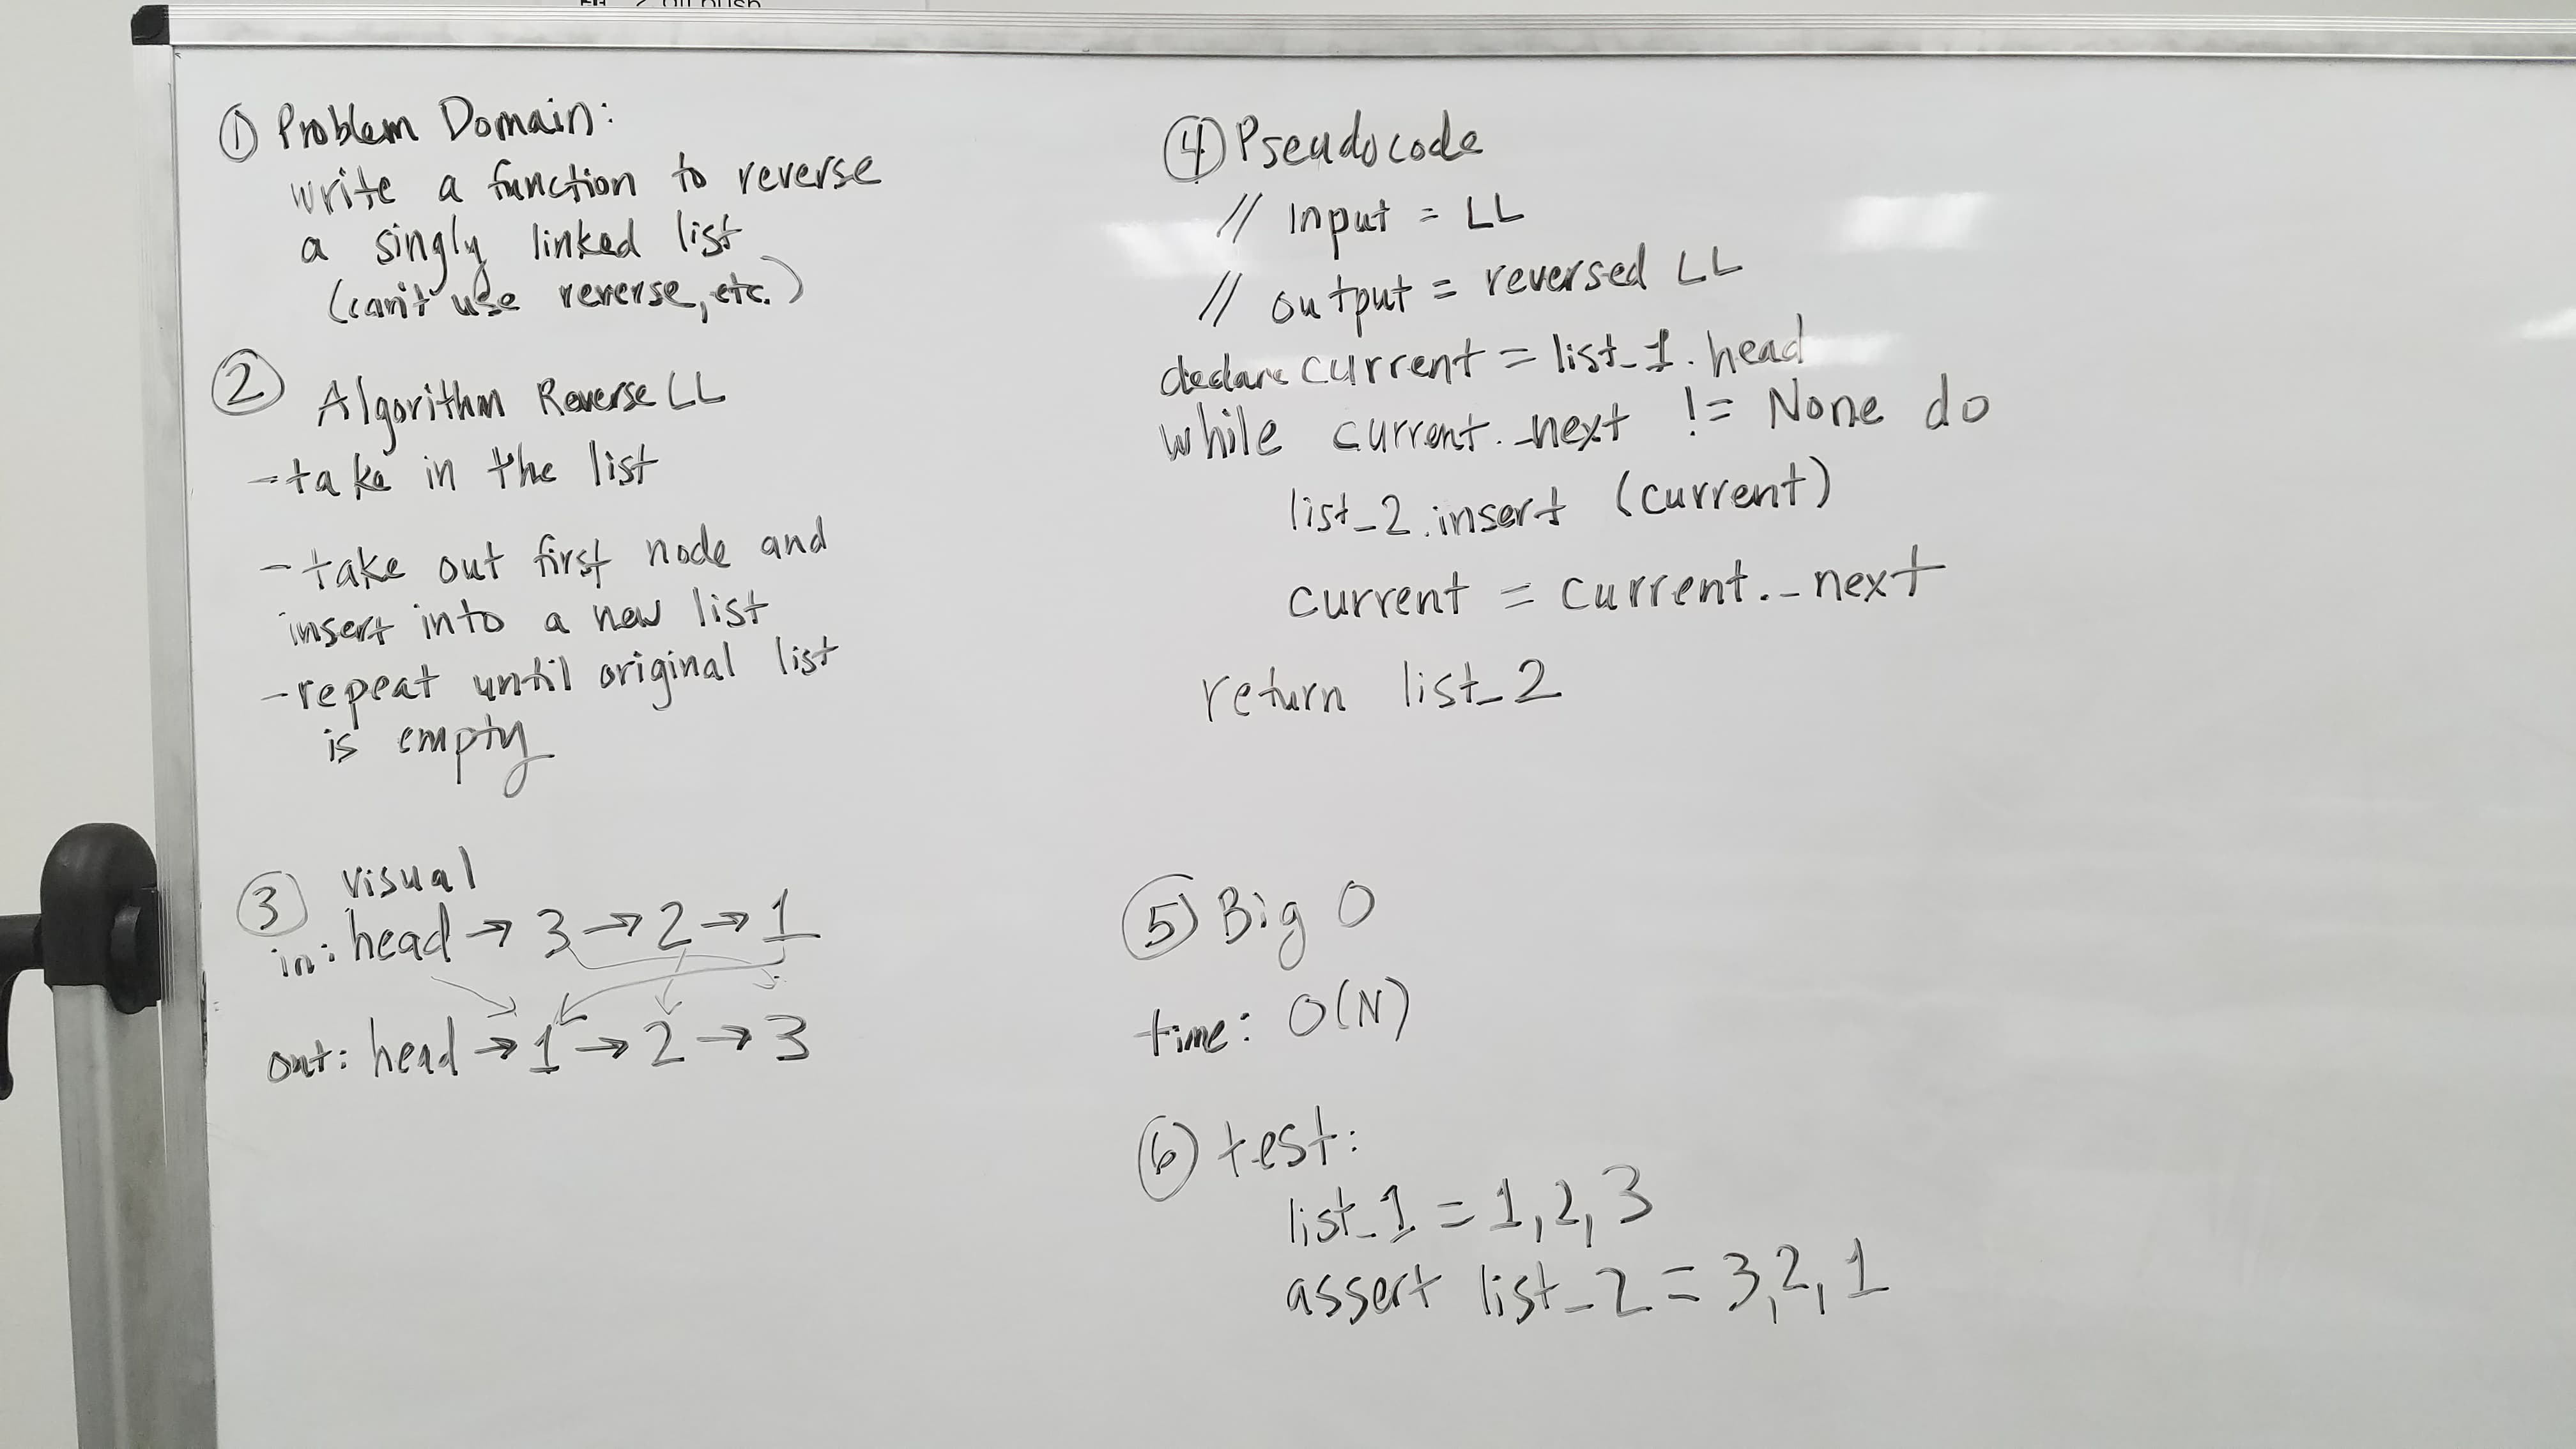 ① Problem Domain:
write a function to reverse
a singly linked list
(can't use reverse, etc.)
② Algorithm Reverse LL
- take in the list
- take out first node and
insert into a new list
- repeat until original list
is empty
③ visual
in: head → 3 → 2 → 1
out: head → 1 → 2 → 3
④ Pseudocode
// input = LL
// output = reversed LL
declare current = list_1.head
while current._next != None do
list_2.insert (current)
current = current._next
return list_2
⑤ Big O
time: O(N)
⑥ test:
list_1 = 1, 2, 3
assert list_2 = 3, 2, 1